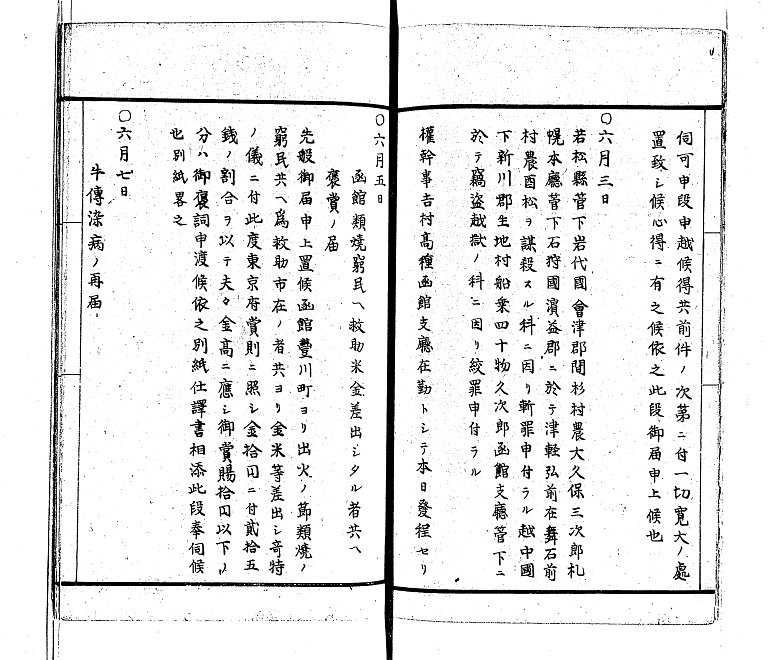 伺可申段申越候得共前件ノ次第ニ付一切寛大ノ處
置致シ候心得ニ有之候依之此段御届申上候也
〇六月三日
若松縣管下岩代國會津郡間杉村農大久保三次郎札
幌本廳管下石狩國濱益郡ニ於テ津軽弘前在舞石前
村農酉松ヲ謀殺スル科ニ因リ斬罪申付ラル越中國
下新川郡生地村船乗四十物久次郎函館支廳管下ニ
於テ竊盗越獄ノ科ニ因リ絞罪申付ラル
權幹事吉村高種函館支廳在勤トシテ本日發程セリ
〇六月五日
函館類焼窮民ヘ救助米金差出シタル者共ヘ
褒賞ノ届
先般御届申上置候函館豐川町ヨリ出火ノ節類焼ノ
窮民共ヘ爲救助市在ノ者共ヨリ金米等差出シ竒特
ノ儀ニ付此度東京府賞則ニ照シ金拾円ニ付貳拾五
錢ノ割合ヲ以テ夫々金高ニ應シ御賞賜拾円以下ノ
分ハ御褒詞申渡候依之別紙仕譯書相添此段奉伺候
也別紙畧之
〇六月七日
牛傳染病ノ再届